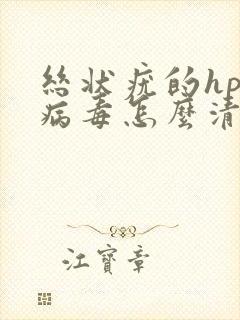 絲狀疣的hp
病毒怎麼清
江寶章